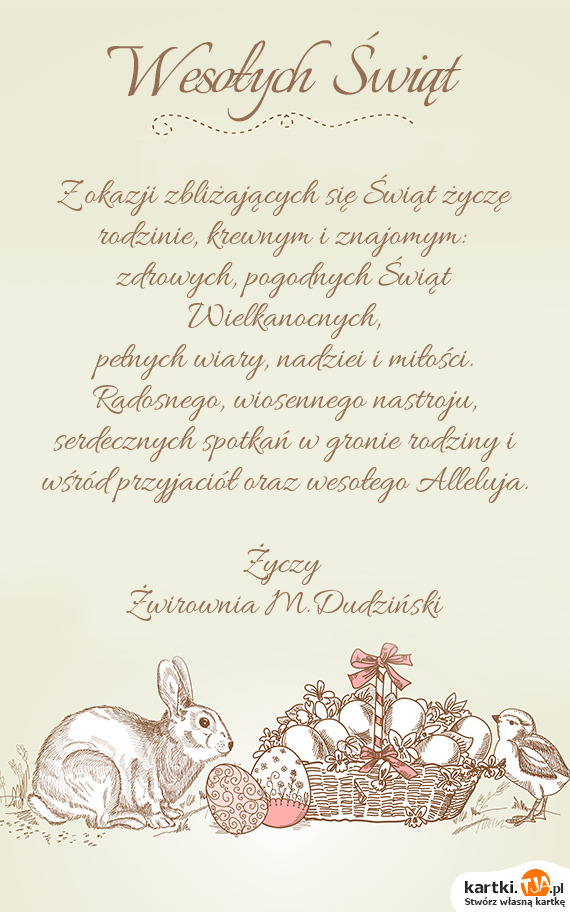 Wesołych Świąt
Z okazji zbliżających się Świąt życzę
rodzinie, krewnym i znajomym:
zdrowych, pogodnych Świąt
Wielkanocnych,
pełnych wiary, nadziei i miłości.
Radosnego, wiosennego nastroju,
serdecznych spotkań w gronie rodziny i
wśród przyjaciół oraz wesołego Alleluja.
Życzy
Żwirownia M.Dudziński
kartki.TJA.pl
Stwórz własną kartkę